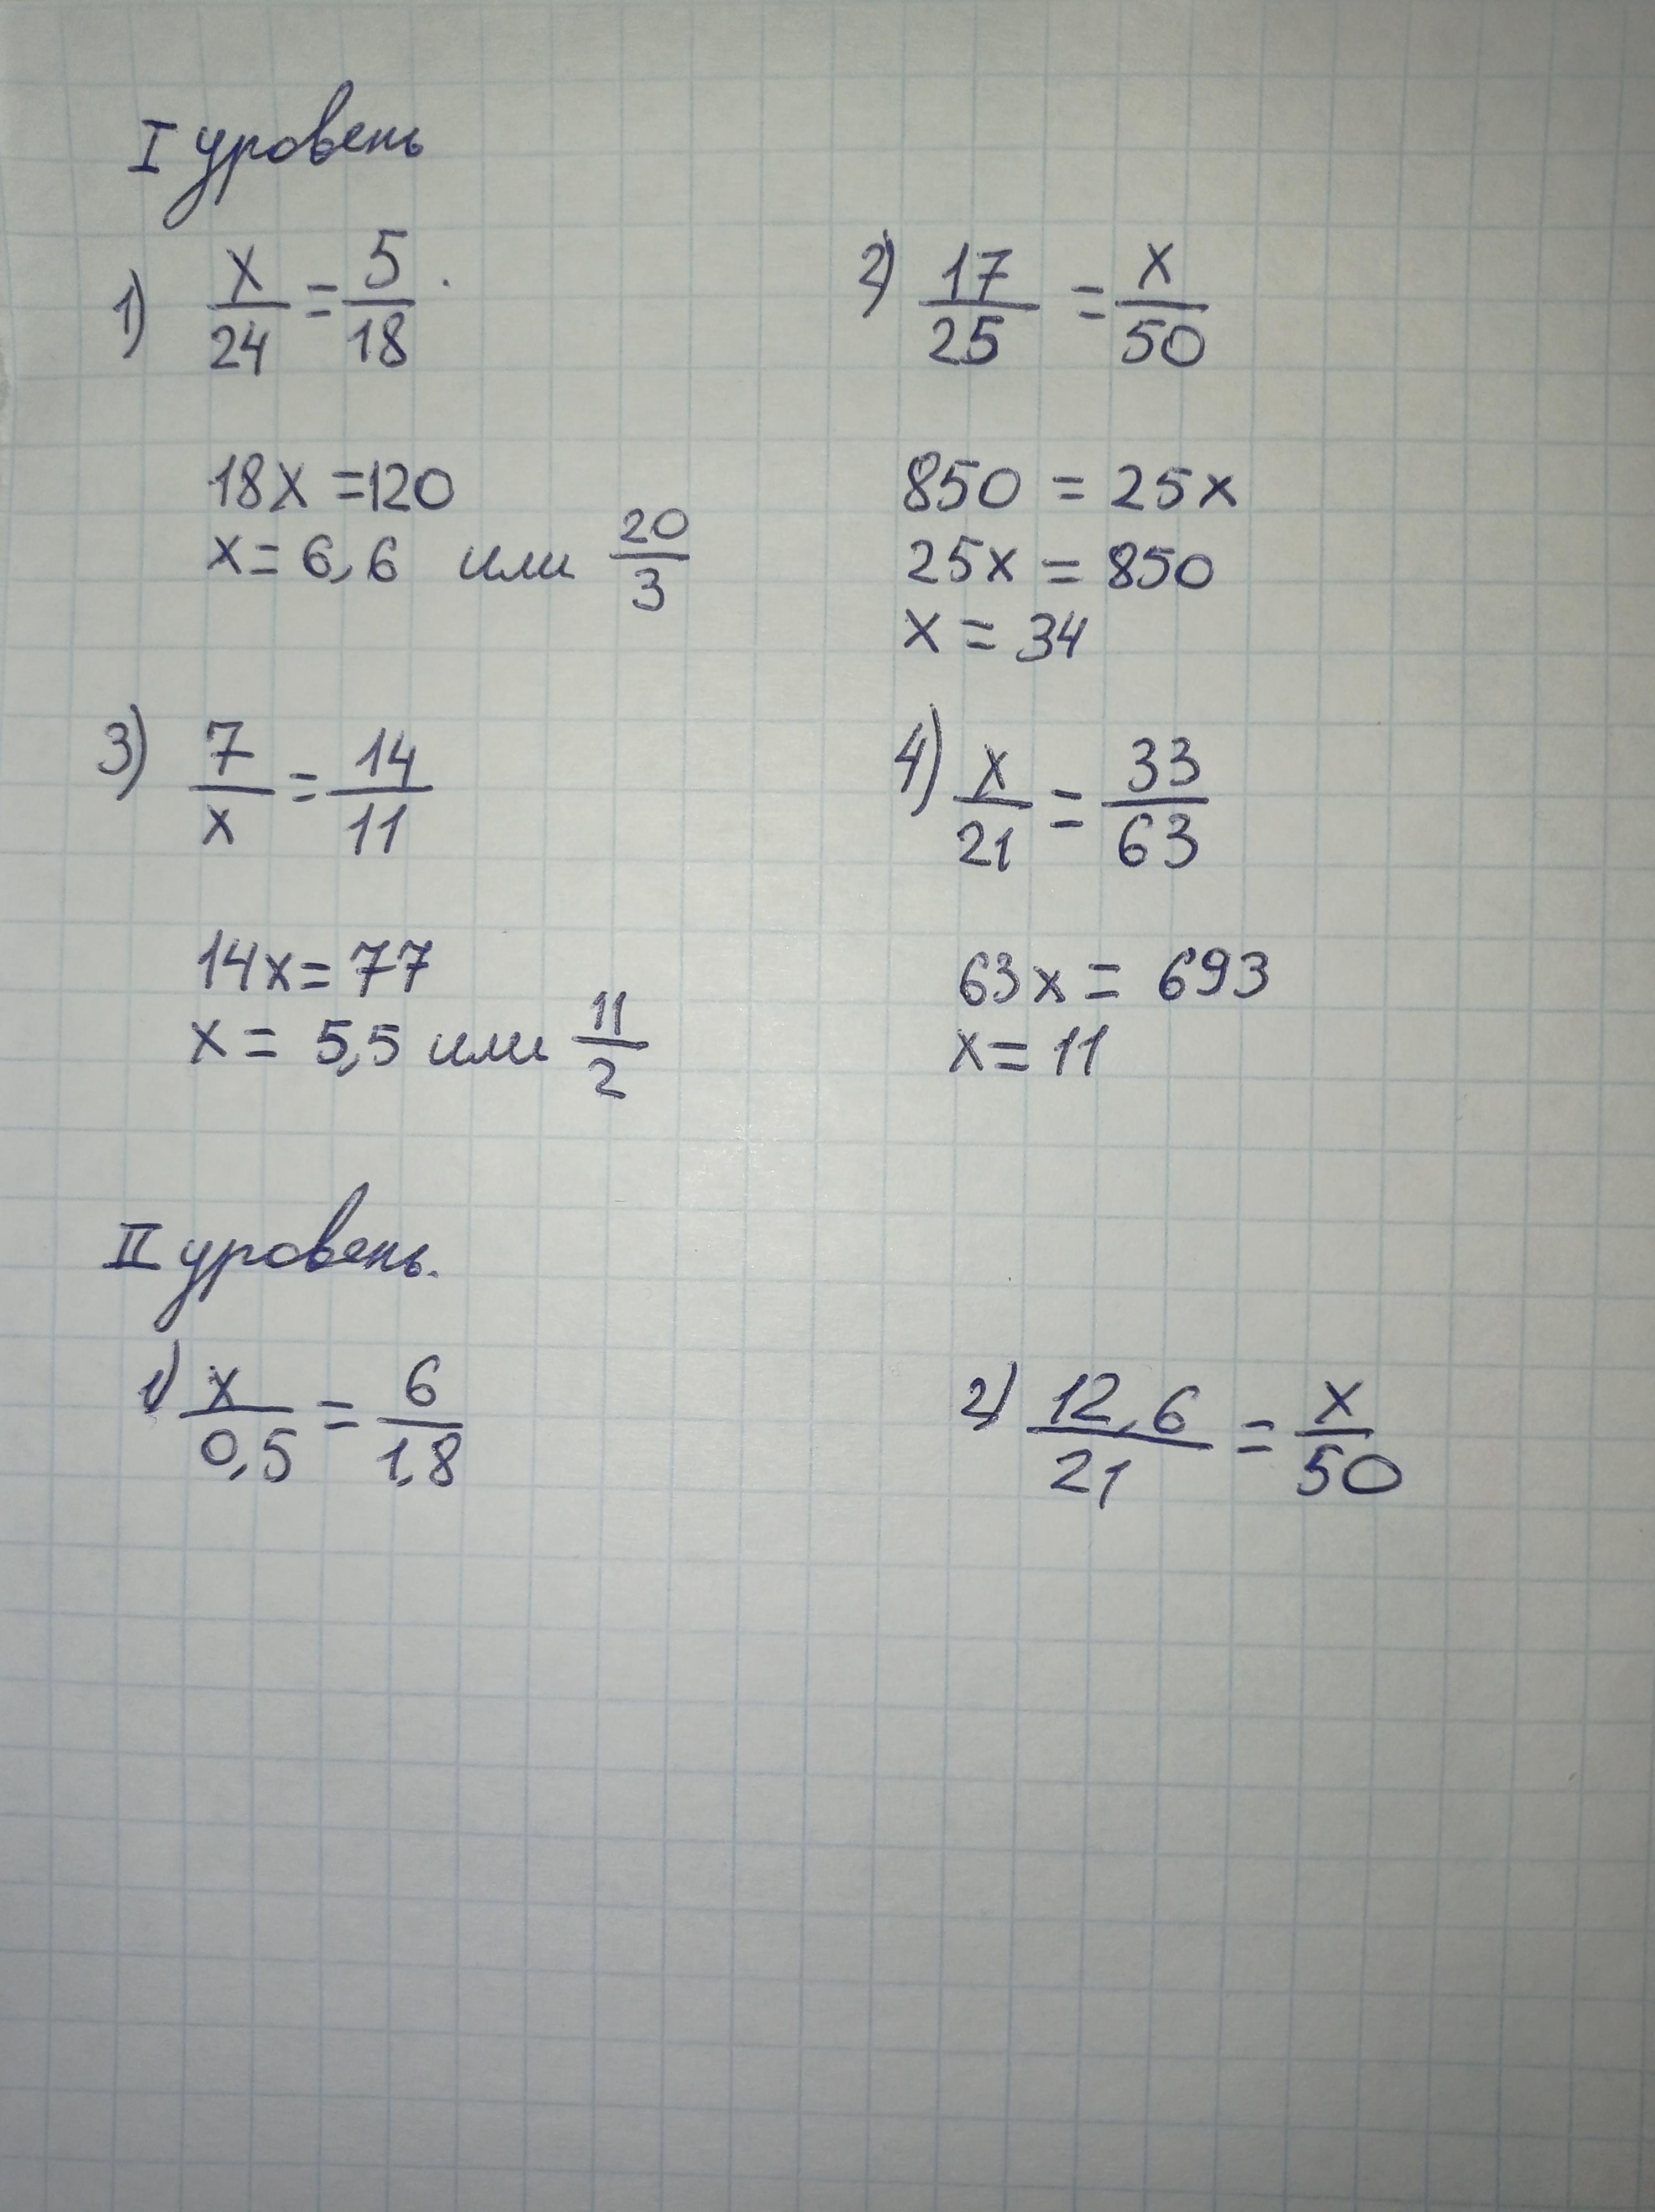 I уровень
1) x/24 = 5/18.
18x = 120
x = 6,6 или 20/3
2) 17/25 = x/50
850 = 25x
25x = 850
x = 34
3) 7/x = 14/11
14x = 77
x = 5,5 или 11/2
4) x/21 = 33/63
63x = 693
x = 11
II уровень.
1) x/0,5 = 6/1,8
2) 12,6/21 = x/50